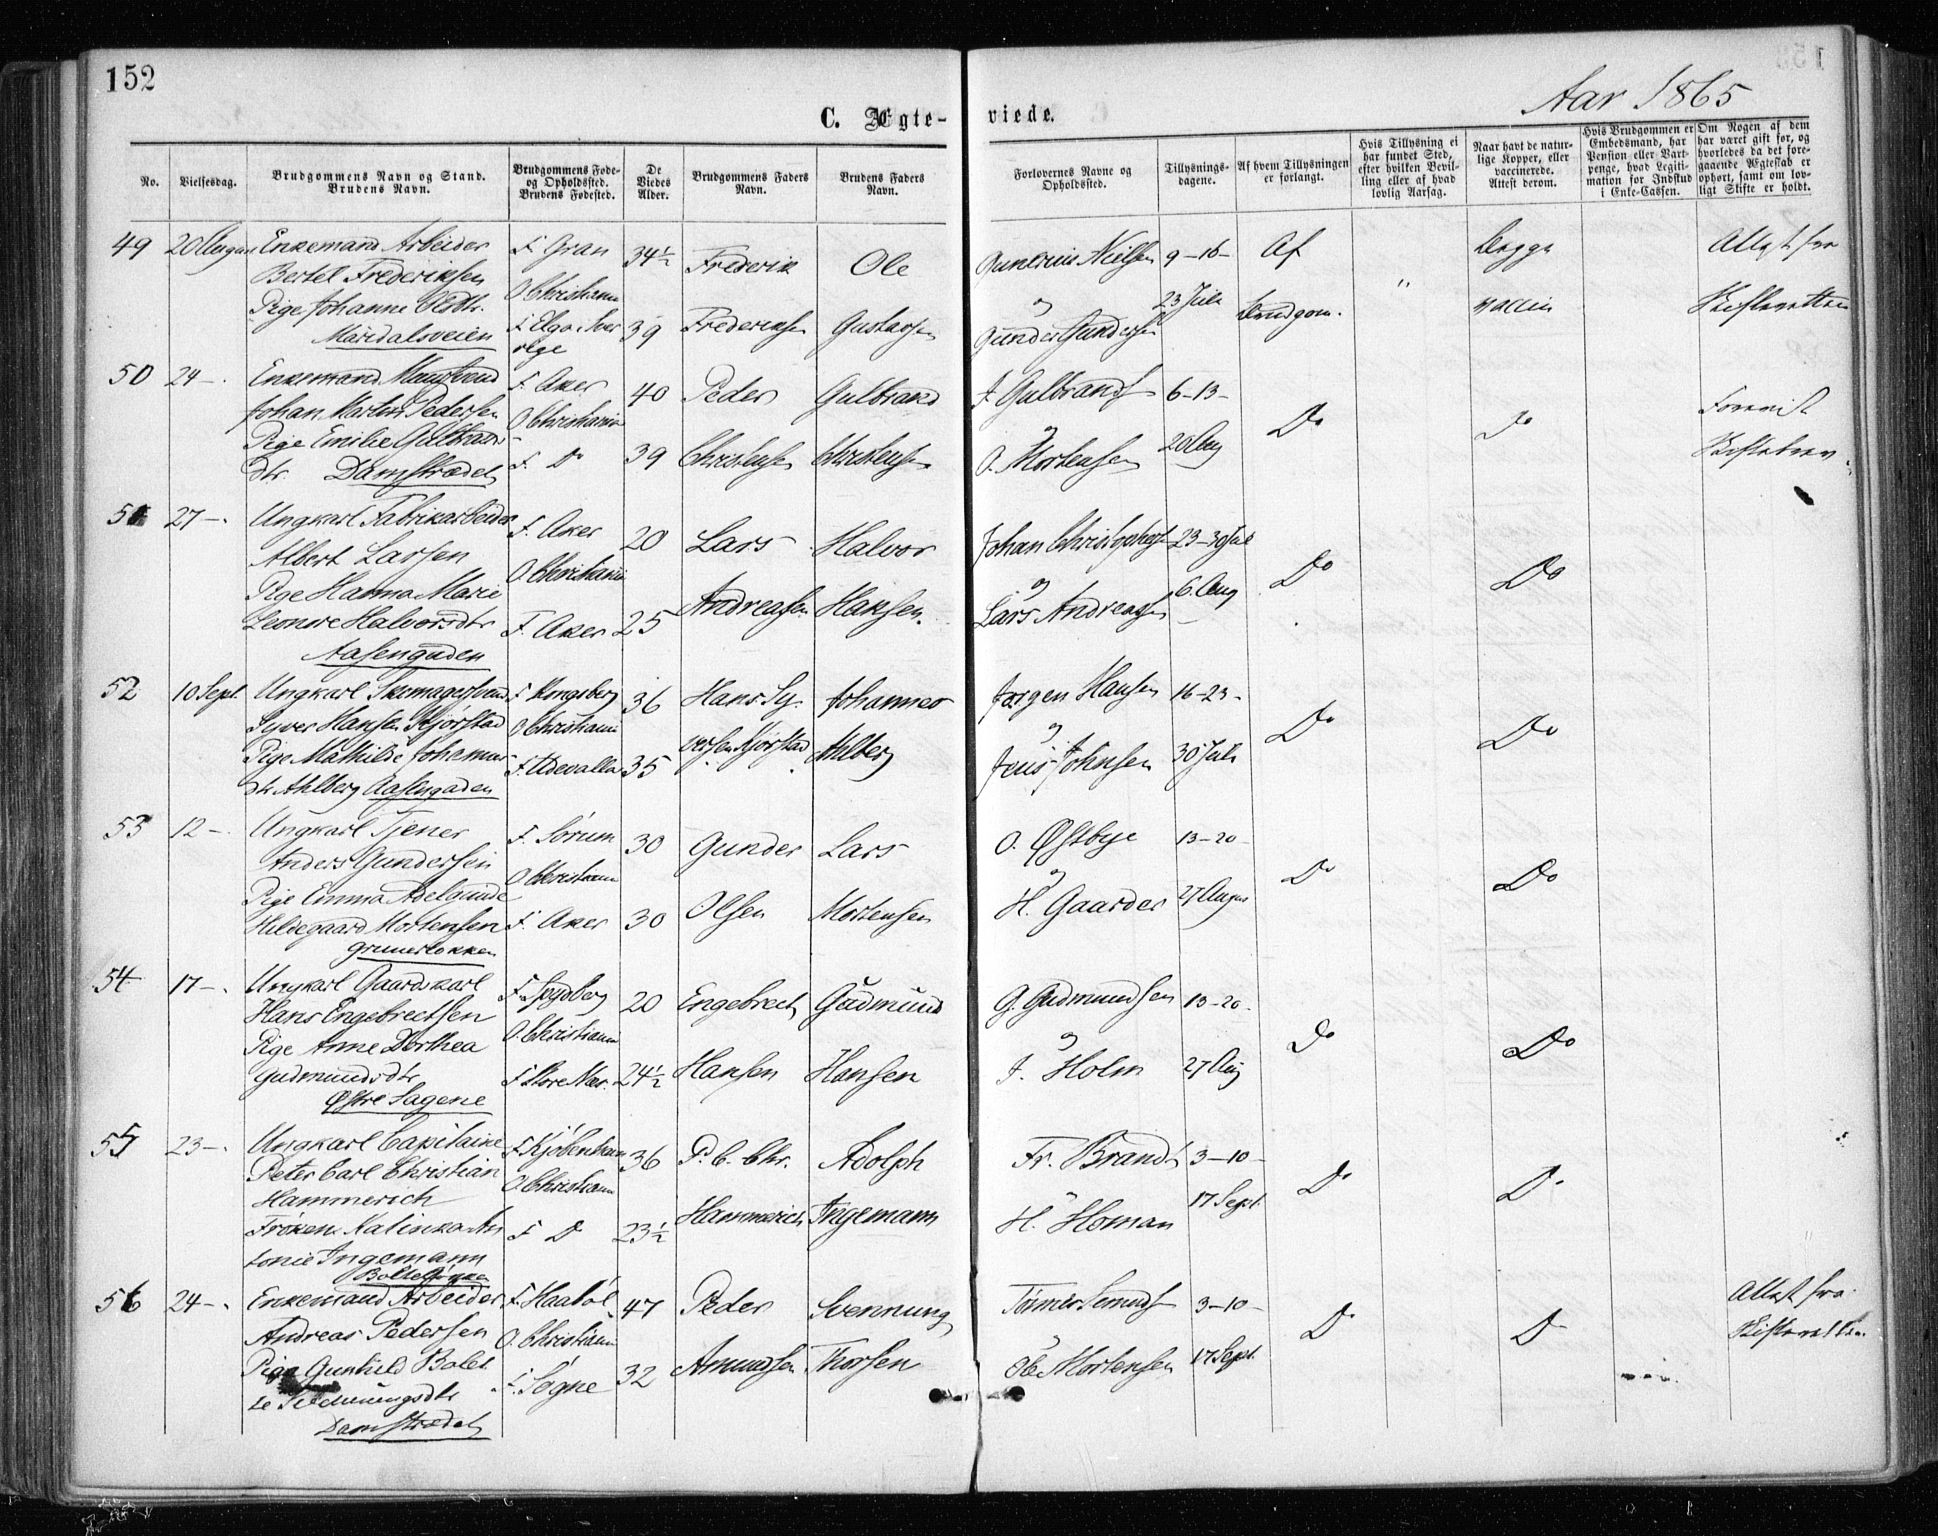 152
Aar 1865
C. Ægte-
viede.
No.
Vielsesdag.
Brudgommens Navn og Stand.
Brudens Navn.
Brudgommens Føde-
og Opholdssted.
Brudens Fødested.
De
Viedes
Alder.
Brudgommens Faders
Navn.
Brudens Faders
Navn.
Forlovernes Navne og
Opholdssted.
Tillysnings-
dagene.
Af hvem Tillysningen
er forlangt.
Hvis Tillysning ei
har fundet Sted,
efter hvilken Bevil-
ling eller af hvad
lovlig Aarsag.
Naar havt de natur-
lige Kopper, eller
vaccinerede.
Attest derom.
Hvis Brudgommen er
Embedsmand, har
Pension eller Vart-
penge, hvad Legiti-
mation for Indskud
i Enke-Cassen.
Om Nogen af dem
har været gift før, og
hvorledes da det fore-
gaaende Ægteskab er
ophørt, samt om lov-
ligt Skifte er holdt.
49 20 August Enkemand Arbeider F. Gran 34½ Frederik Ole Gunerius Nielsen 9-16- Af Begge Attest fra
Bertel Frederiksen O Christiania
Pige Johanne Olsdtr. F. Elga Sver 39 Frederiksen Gustavsen og Gunder Gundersen 23 Juli Brudgom. " vaccin Skifteretten
Maridalsveien rige
50 24 -. Enkemand F. Aker 40 Peder Gulbrand J Gulbrands 6-13- Do Do Forevist
Johan Martin Pedersen O Christiania
Pige Emilie Gulbrands og
dtr. Damstrædet F. Do 39 Christensen Christensen O. Mortensen 20 Aug Skiftebrev
51 27 -. Ungkarl Fabrikarbeider F. Aker 20 Lars Halvor Johan Christophers 23-30 Jul Do Do
Albert Larsen O. Christiania
Pige Hanna Marie og
Leonore Halvorsdtr F. Aker 25 Andreasen Hansen. Lars Andreasen 6. Aug
Aasengaden
52 10 Sept. Ungkarl Skomagersvend F Kongsberg 36 Hans Sy- Johannes Jørgen Hansen 16-23- Do Do
Syver Hansen Kjørstad O Christiania og
Pige Mathilde Johannes F. Udevalla 35 versen Kjørstad Ahlberg Jens Johnsen 30 Juli
dtr Ahlberg Aasengaden
53 12 -. Ungkarl Tjener F. Sørum 30 Gunder Lars O. Østbye 13-20- Do Do
Anders Gundersen O Christiania og
Pige Emma Adelgunde
Hildegaard Mortensen F. Aker 30 Olsen Mortensen H. Gaarder 27 August
Grunerløkken
54 17 -. Ungkarl Gaardskarl F. Spydberg 20 Engebrect Gudmund G. Gudmundsen 13-20- Do Do
Hans Engebrectsen O. Christiania
Pige Anne Dorthea og
Gudmundsdtr F. Store Nær. 24½ Hansen Hansen J. Holm 27 Aug
Østre Sagene
55 23 -. Ungkarl Capitaine F. Kjøbenhavn 36 P. C. Chr. Adolph Fr. Brandt 3-10- Do Do
Peter Carl Christian O. Christiania
Hammerich og
Frøken Kalinka An F Do 23½ Hammerich Ingemann H. Homan 17 Sept.
tonie Ingemann
Bolteløkka
56 24 -. Enkemand Arbeider F. Haabøl 47 Peder Svennung 3-10- Do Do Attest fra
Andreas Pedersen O. Christiania Skifteretten
Pige Gunhild Bolet F. Søgne 32 Amundsen Thorsen Ole Mortensen 17 Sept.
te Svennungsdtr
Damstrædet